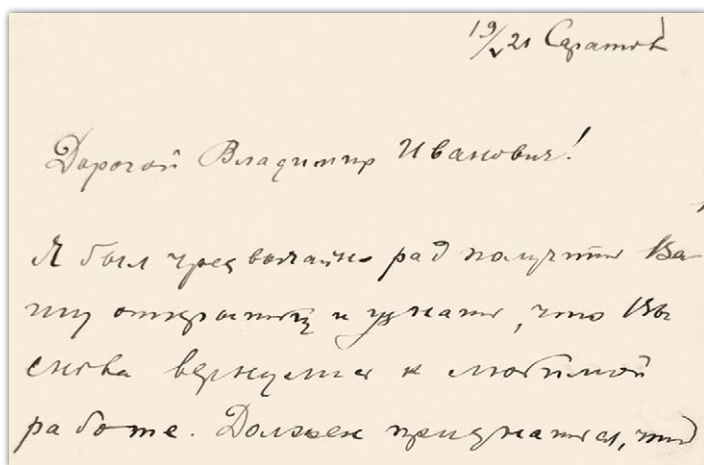 19/V 21 Саратов
Дорогой Владимир Иванович!
Я был чрезвычайно рад получить Ва-
шу открытку и узнать, что Вы
снова вернулись к любимой
работе. Должен признаться, что